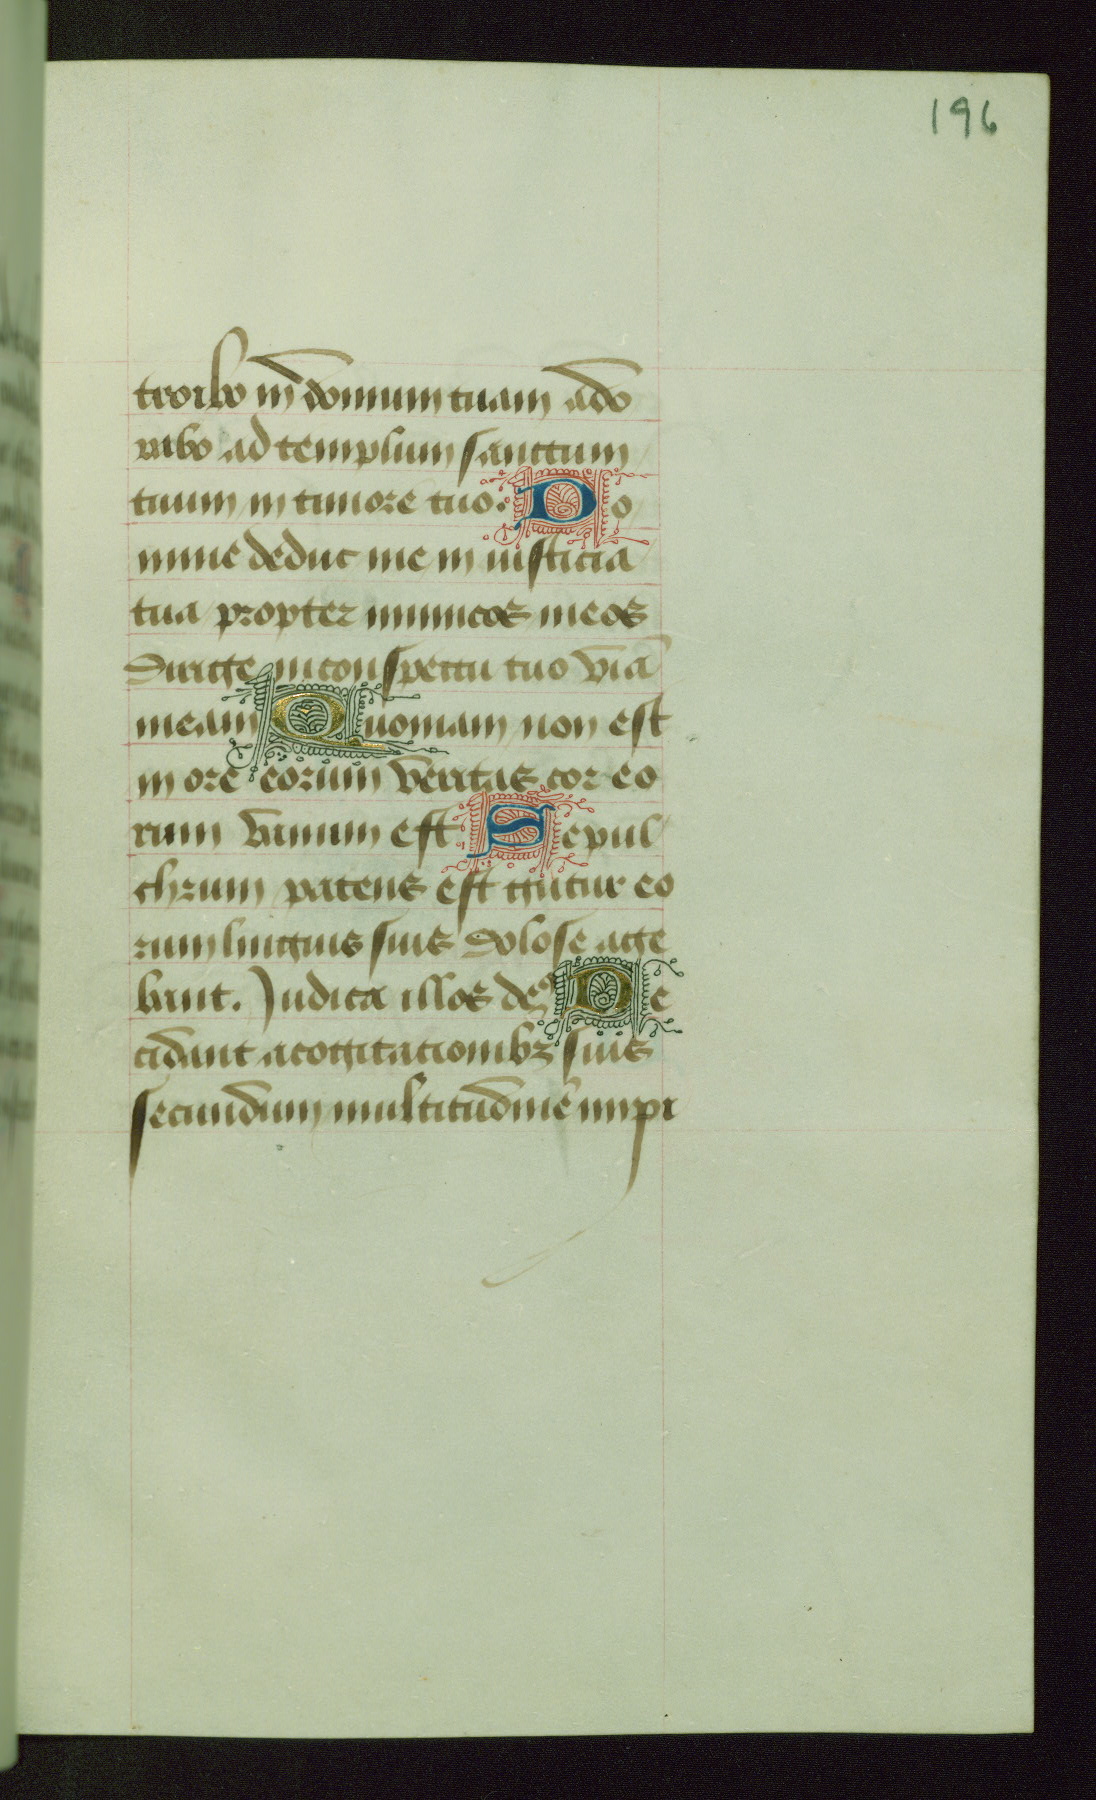 196
troibo in domum tuam ado
rabo ad templum sanctum
tuum in timore tuo. Do
mine deduc me in iusticia
tua propter inimicos meos
Dirige in conspectu tuo viā
meam Quoniam non est
in ore eorum veritas cor eo
rum vanum est Sepul
chrum patens est guttur eo
rum linguis suis dolose age
bant. Judica illos deꝰ De
cidant a cogitationibꝫ suis
secundum multitudinē impi